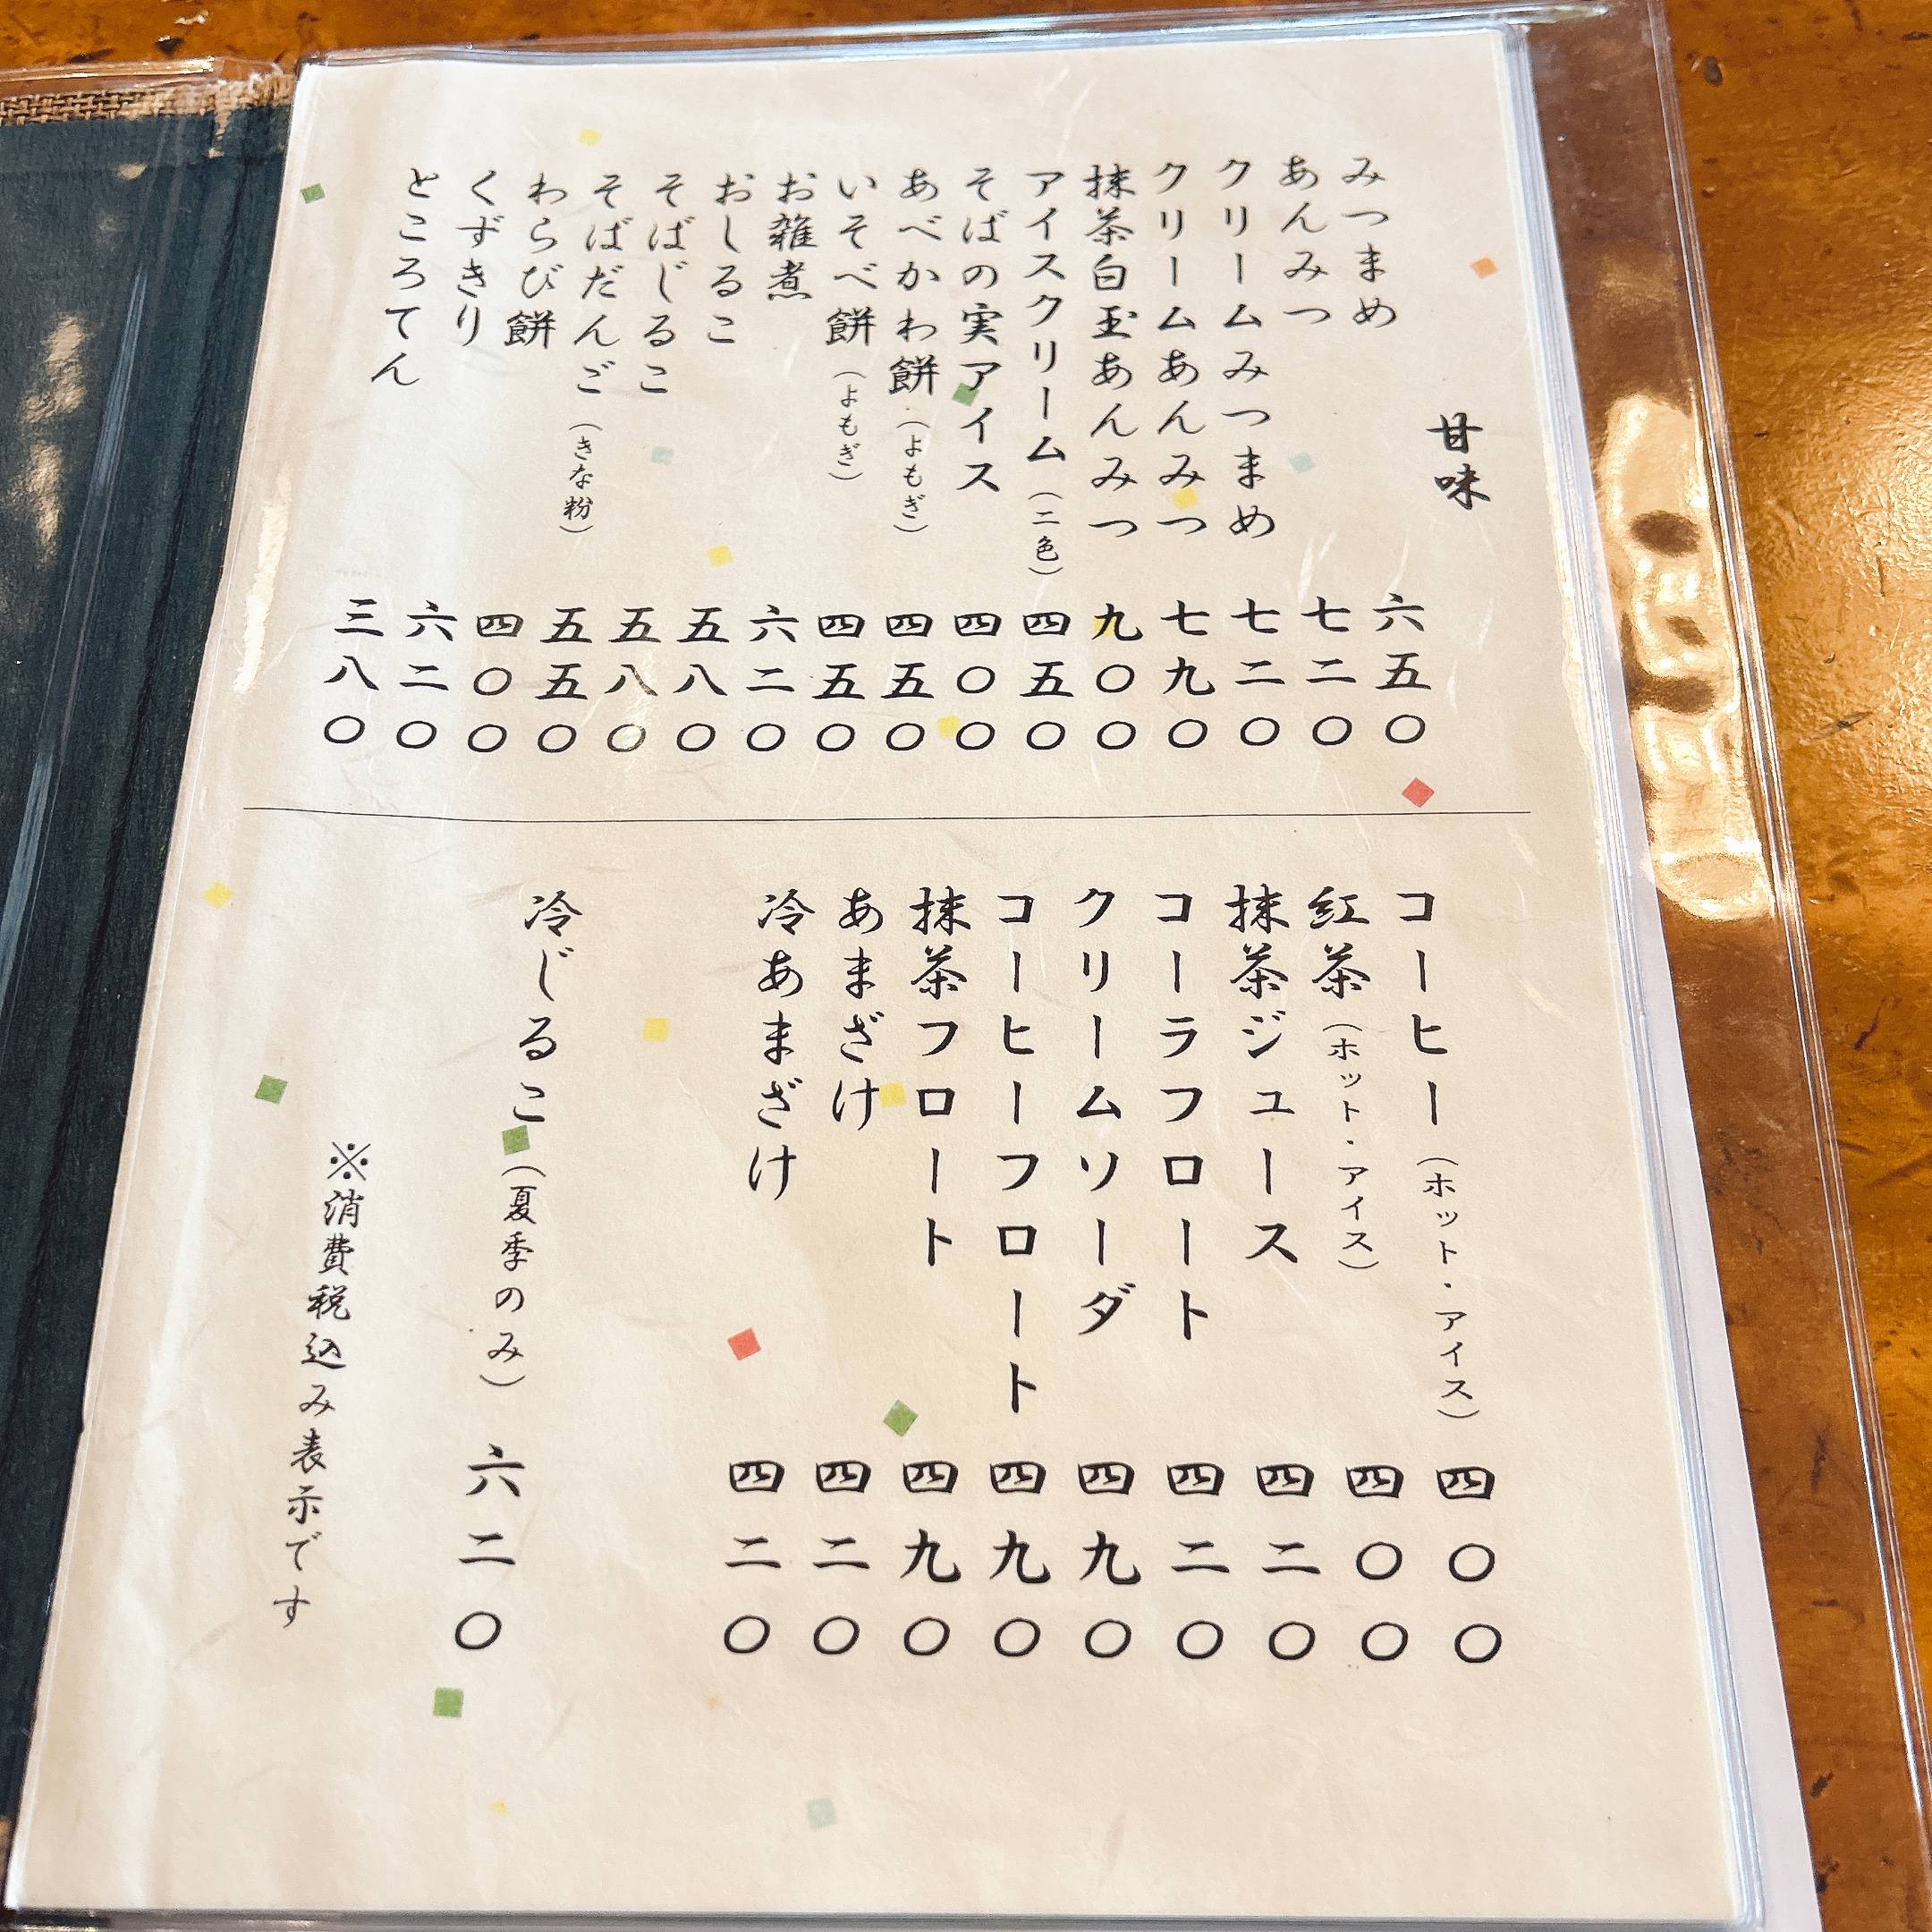 甘味
みつまめ 六五〇
あんみつ 七二〇
クリームみつまめ 七二〇
クリームあんみつ 七九〇
抹茶白玉あんみつ 九〇〇
アイスクリーム（二色） 四五〇
そばの実アイス 四〇〇
あべかわ餅（よもぎ） 四五〇
いそべ餅（よもぎ） 四五〇
お雑煮 六二〇
おしるこ 五八〇
そばじるこ 五八〇
そばだんご（きな粉） 五五〇
わらび餅 四〇〇
くずきり 六二〇
ところてん 三八〇
コーヒー（ホット・アイス） 四〇〇
紅茶（ホット・アイス） 四〇〇
抹茶ジュース 四二〇
コーラフロート 四二〇
クリームソーダ 四九〇
コーヒーフロート 四九〇
抹茶フロート 四九〇
あまざけ 四二〇
冷あまざけ 四二〇
冷じるこ（夏季のみ） 六二〇
※消費税込み表示です